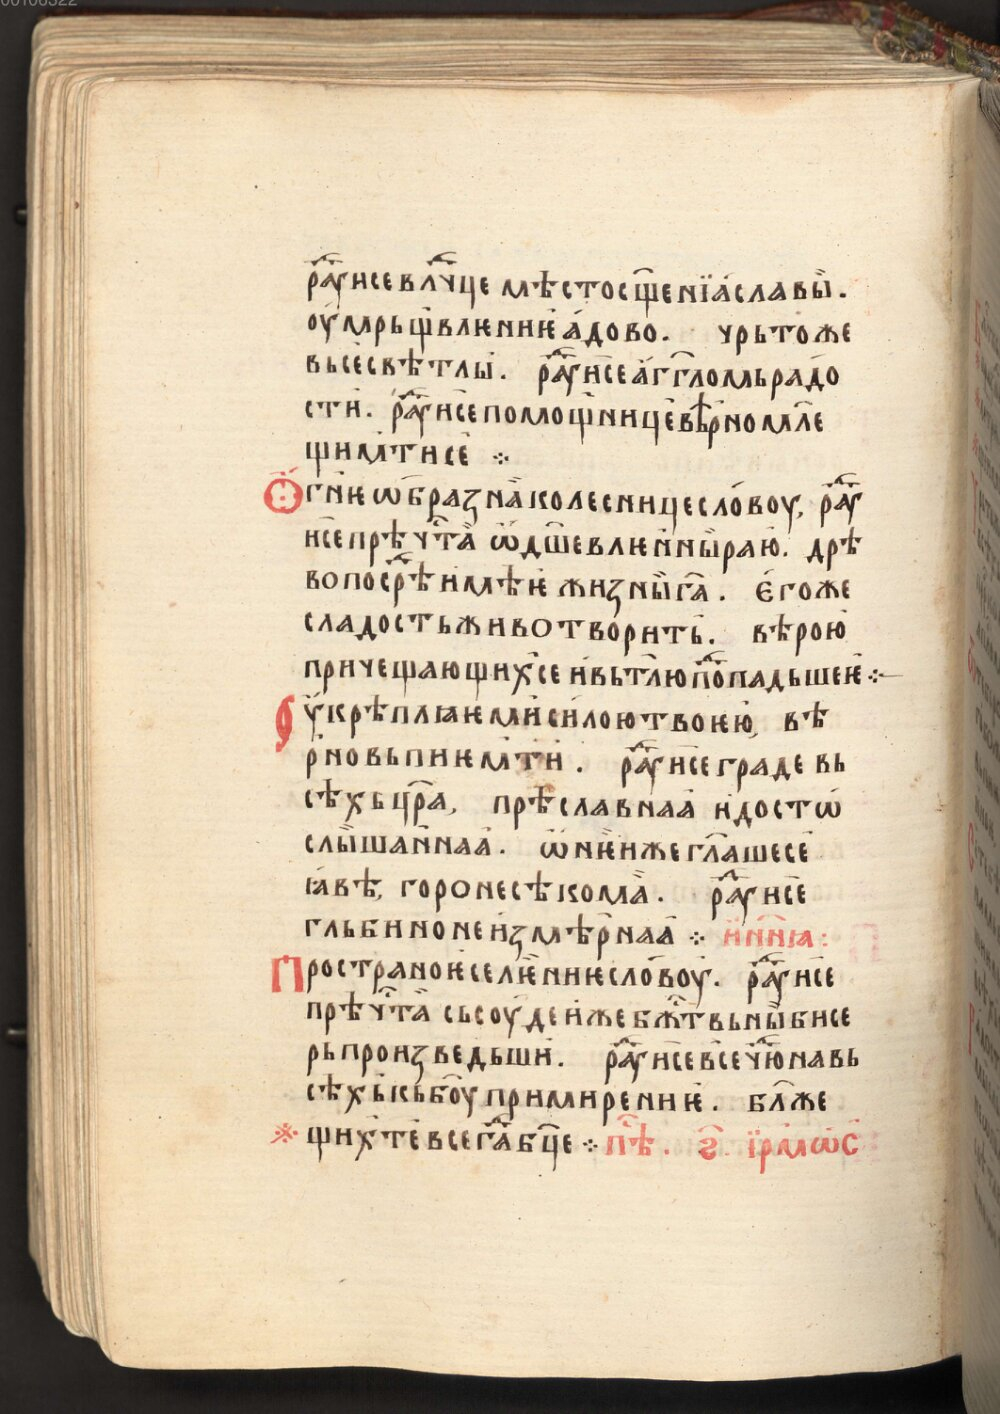 00108322
раⷣуисе влⷣчце мѣсто сщ҃енїа славы̀.
оу҆мрьщвлѥниѥ а҆дово. чрьтоже
вьсесвѣтлы. раⷣуисе а҆гг҃ломь радо
сти. раⷣуисе помощнице вѣрно мл҃е
щимтисе ⁘
Ѻгнѥѡбразнаа колеснице словоу, раⷣу
исе прѣчⷭтаа ѡ҆дш҃евлѥнны раю. дрѣ
во посрⷣѣ имѣѥ жизны г҃а. ѥгоже
сладость животворить. вѣрою
причещающихсе и вьтлю попⷣадьшеѥ ⁘
Оу҆крѣплꙗѥми силою твоѥю, вѣ
рно вьпиѥмти. раⷣуисе граде вь
сѣхь цр҃а, прѣславнаа и достѡ
слышаннаа. ѡ нѥиже гл҃ашесе
ꙗвѣ, горо несѣкома. раⷣуисе
гльбино неизмѣрнаа ⁘ и нн҃ꙗ:
Пространоѥ селѥниѥ словоу. раⷣуисе
прѣчⷭтаа сьсоуде иже бжⷭтвьны бисе
рь произведьши. раⷣуисе всечюⷣнаа вь
сѣхь кь бо҃у примирениѥ. бл҃же
щихте всегⷣа бц҃е ⁘ пѣⷭ. г҃. їрмѡс